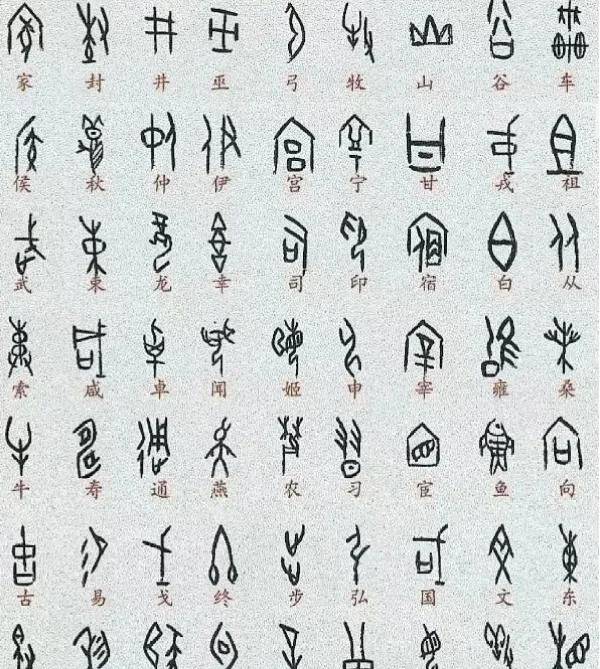 家 封 井 巫 弓 牧 山 谷 车
侯 秋 仲 伊 宫 宁 甘 戎 祖
武 束 龙 幸 司 印 宿 白 从
索 咸 卓 闻 姬 申 宰 雍 桑
牛 寿 通 燕 农 习 宦 鱼 向
古 易 戈 终 步 弘 国 文 东